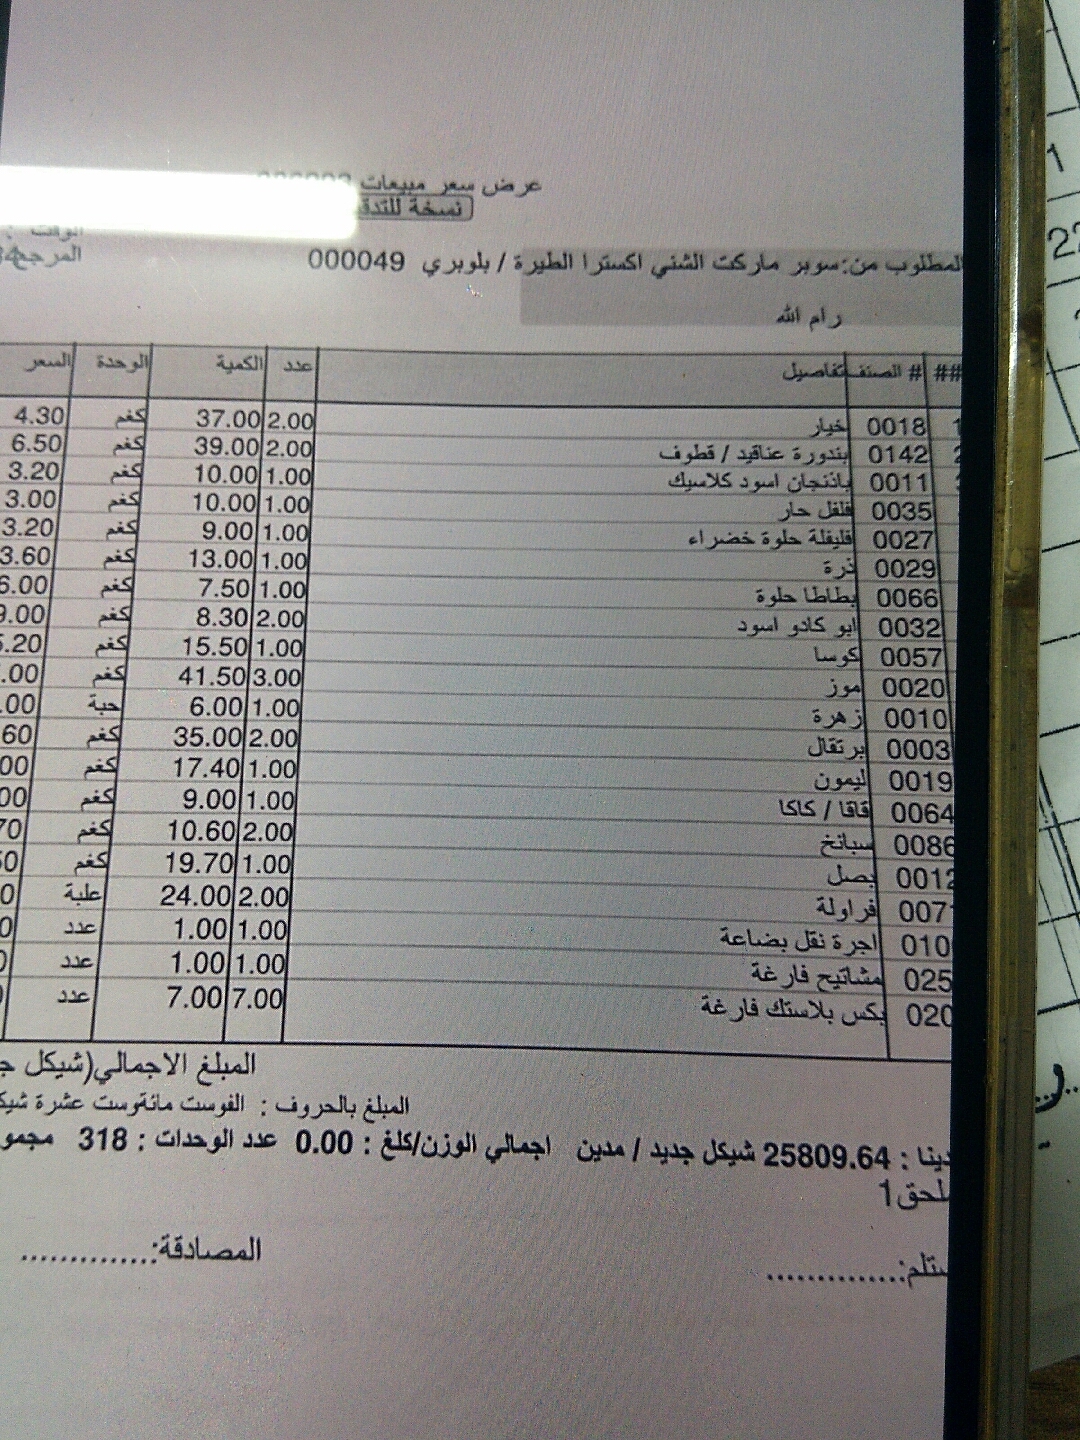 عرض سعر مبيعات
نسخة للتدق
الوقت :
المطلوب من:سوبر ماركت الشني اكسترا الطيرة / بلوبري 000049 المرجع
رام الله
## # الصنف تفاصيل عدد الكمية الوحدة السعر
1 0018 خيار 2.00 37.00 كغم 4.30
2 0142 بندورة عناقيد / قطوف 2.00 39.00 كغم 6.50
0011 باذنجان اسود كلاسيك 1.00 10.00 كغم 3.20
0035 فلفل حار 1.00 10.00 كغم 3.00
0027 فليفلة حلوة خضراء 1.00 9.00 كغم 3.20
0029 ذرة 1.00 13.00 كغم 3.60
0066 بطاطا حلوة 1.00 7.50 كغم 6.00
0032 ابو كادو اسود 2.00 8.30 كغم 9.00
0057 كوسا 1.00 15.50 كغم 5.20
0020 موز 3.00 41.50 كغم .00
0010 زهرة 1.00 6.00 حبة .00
0003 برتقال 2.00 35.00 كغم 60
0019 ليمون 1.00 17.40 كغم 00
0064 قاقا / كاكا 1.00 9.00 كغم 00
0086 سبانخ 2.00 10.60 كغم 70
0012 بصل 1.00 19.70 كغم 50
007 فراولة 2.00 24.00 علبة 0
010 اجرة نقل بضاعة 1.00 1.00 عدد 0
025 مشاتيح فارغة 1.00 1.00 عدد
020 بكس بلاستك فارغة 7.00 7.00 عدد
المبلغ الاجمالي(شيكل ج
المبلغ بالحروف : الفوست مائةوست عشرة شيك
دينا : 25809.64 شيكل جديد / مدين اجمالي الوزن/كلغ : 0.00 عدد الوحدات : 318 مجمو
لحق1
ستلم:.............. المصادقة:..............